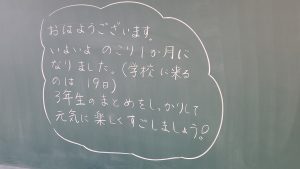 おはようございます。
いよいよ のこり1か月に
なりました。(学校に来る
のは 19日)
3年生のまとめをしっかりして
元気に楽しくすごしましょう。